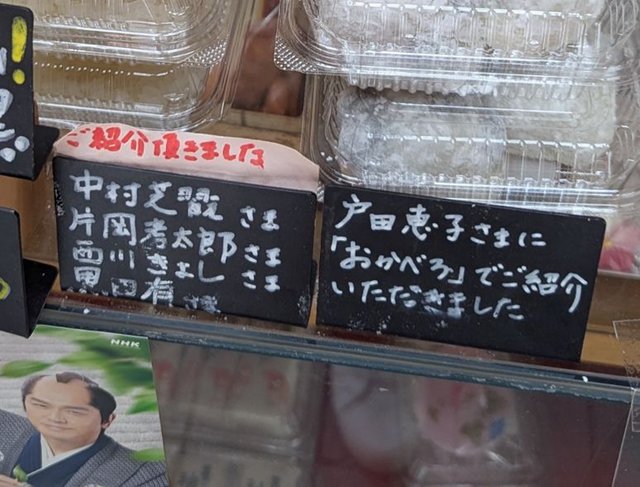 ご紹介頂きました
中村芝翫さま
片岡孝太郎さま
西川きよしさま
黒田有さま
戸田恵子さまに
「おかべろ」でご紹介
いただきました
NHK